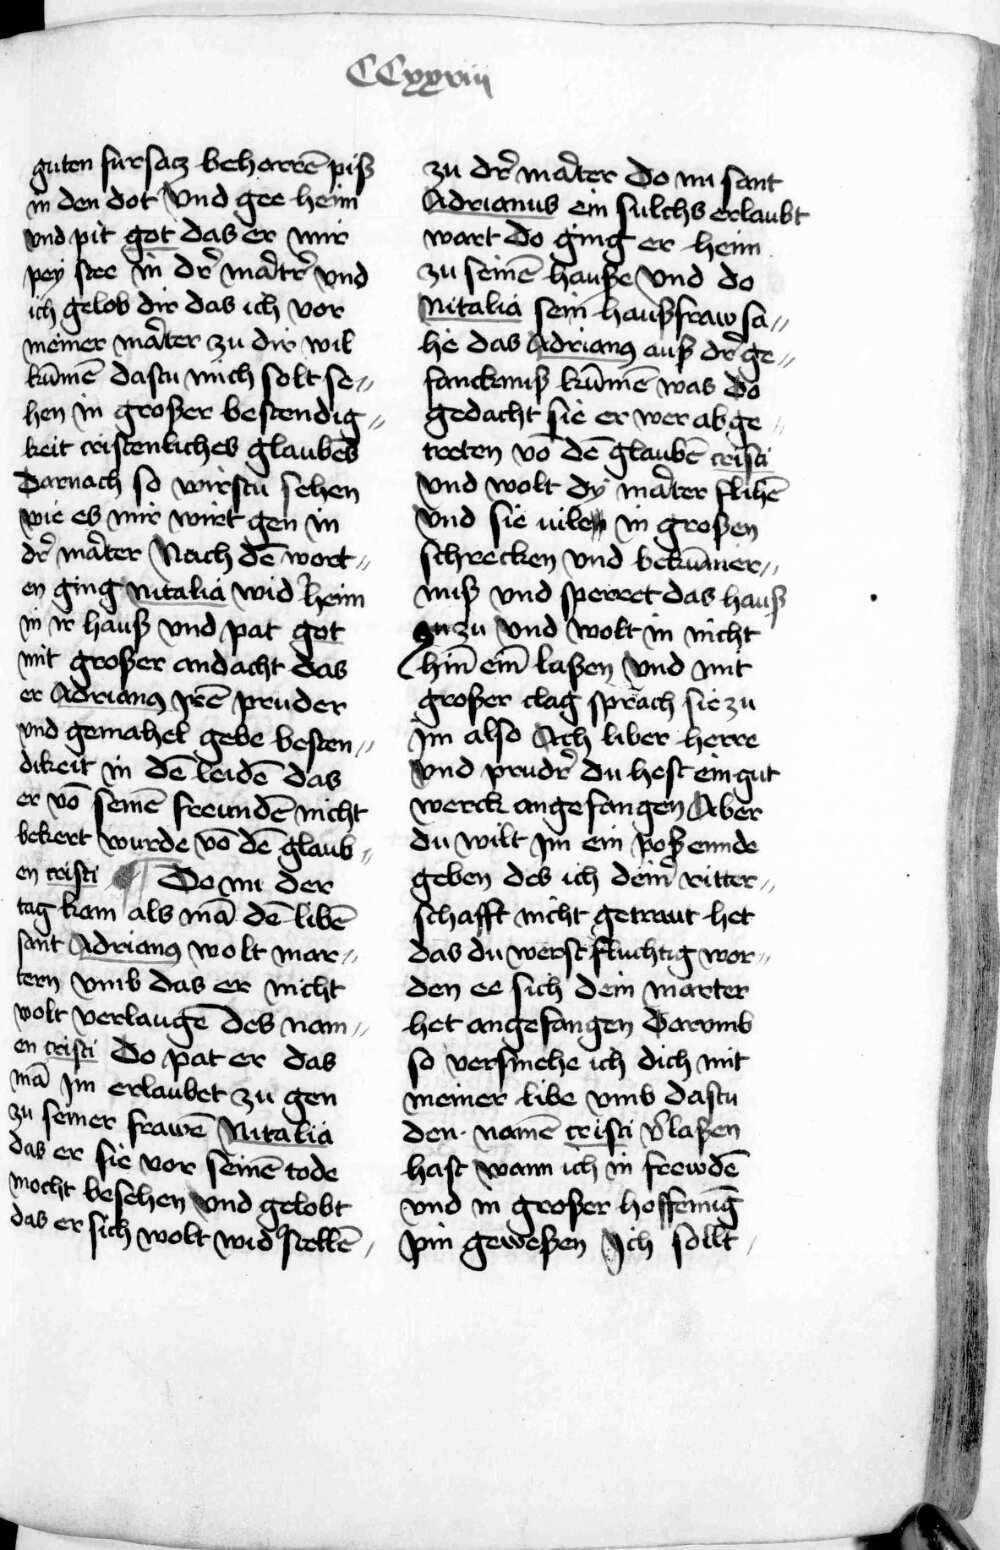 CCxxviii
guten fursacz beharrē piß
in den dot Vnd gee heim
vnd pit got das er mir
pey stee in dr̄ mart̄r̄ Vnd
ich gelob dir das ich vor
meiner mart̄er zu dir wil
kūmē dastu mich solt se〃
hen in großer bestendig〃
keit cristenliches glaubēs
Darnach so wirstu sehen
wie es mir wirt gen in
dr̄ mart̄er Nach dē wort〃
en ging nitalia wid̄ heim
in ir hauß Vnd pat got
mit großer andacht das
er Adrianꝰ yrē pruder
vnd gemahel gebe besten〃
dikeit in dē leidē das
er vō seinē freundē nicht
bekert wurde vō dē glaub〃
en cristi ¶ Do nu der
tag kam als mā dē libē
sant Adrianꝰ wolt mar〃
tern vmb das er nicht
wolt verlaugē des nam〃
en cristi Do pat er das
mā im erlaubet zu gen
zu seiner frawē Nitalia
das er sie vor seinē tode
mocht besehen Vnd gelobt
das er sich wolt wid̄ stellē〃
zu dr̄ mart̄er Do nu sant
Adrianus ein sulchs erlaubt
wart Do ging er heim
zu seinē hauße Vnd do
Nitalia sein haußfraw sa〃
he das Adrianꝰ auß dr̄ ge〃
fancknuß kūmē was Do
gedacht sie er wer ab ge〃
treten vō dē glaubē cristi
Vnd wolt dy mart̄er flihē
Vnd sie in großen
schrecken Vnd bekūmer〃
nuß Vnd sperret das hauß
zu Vnd wolt in nicht
hin̄ ein̄ laßen Vnd mit
großer clag sprach sie zu
im also Ach liber herre
Vnd prudr̄ du hest ein gut
werck angefangen Aber
du wilt im ein poß ennde
geben des ich deinr̄ ritter〃
schafft nicht getraut het
das du werst fluchtig wor〃
den ee sich dein marter
het angefangen Darvmb
so versmehe ich dich mit
meiner libe vmb dastu
den namē cristi v̄laßen
hast wann ich in frewdē
vnd in großer hoffenūg
pin geweßen Ich sollt〃